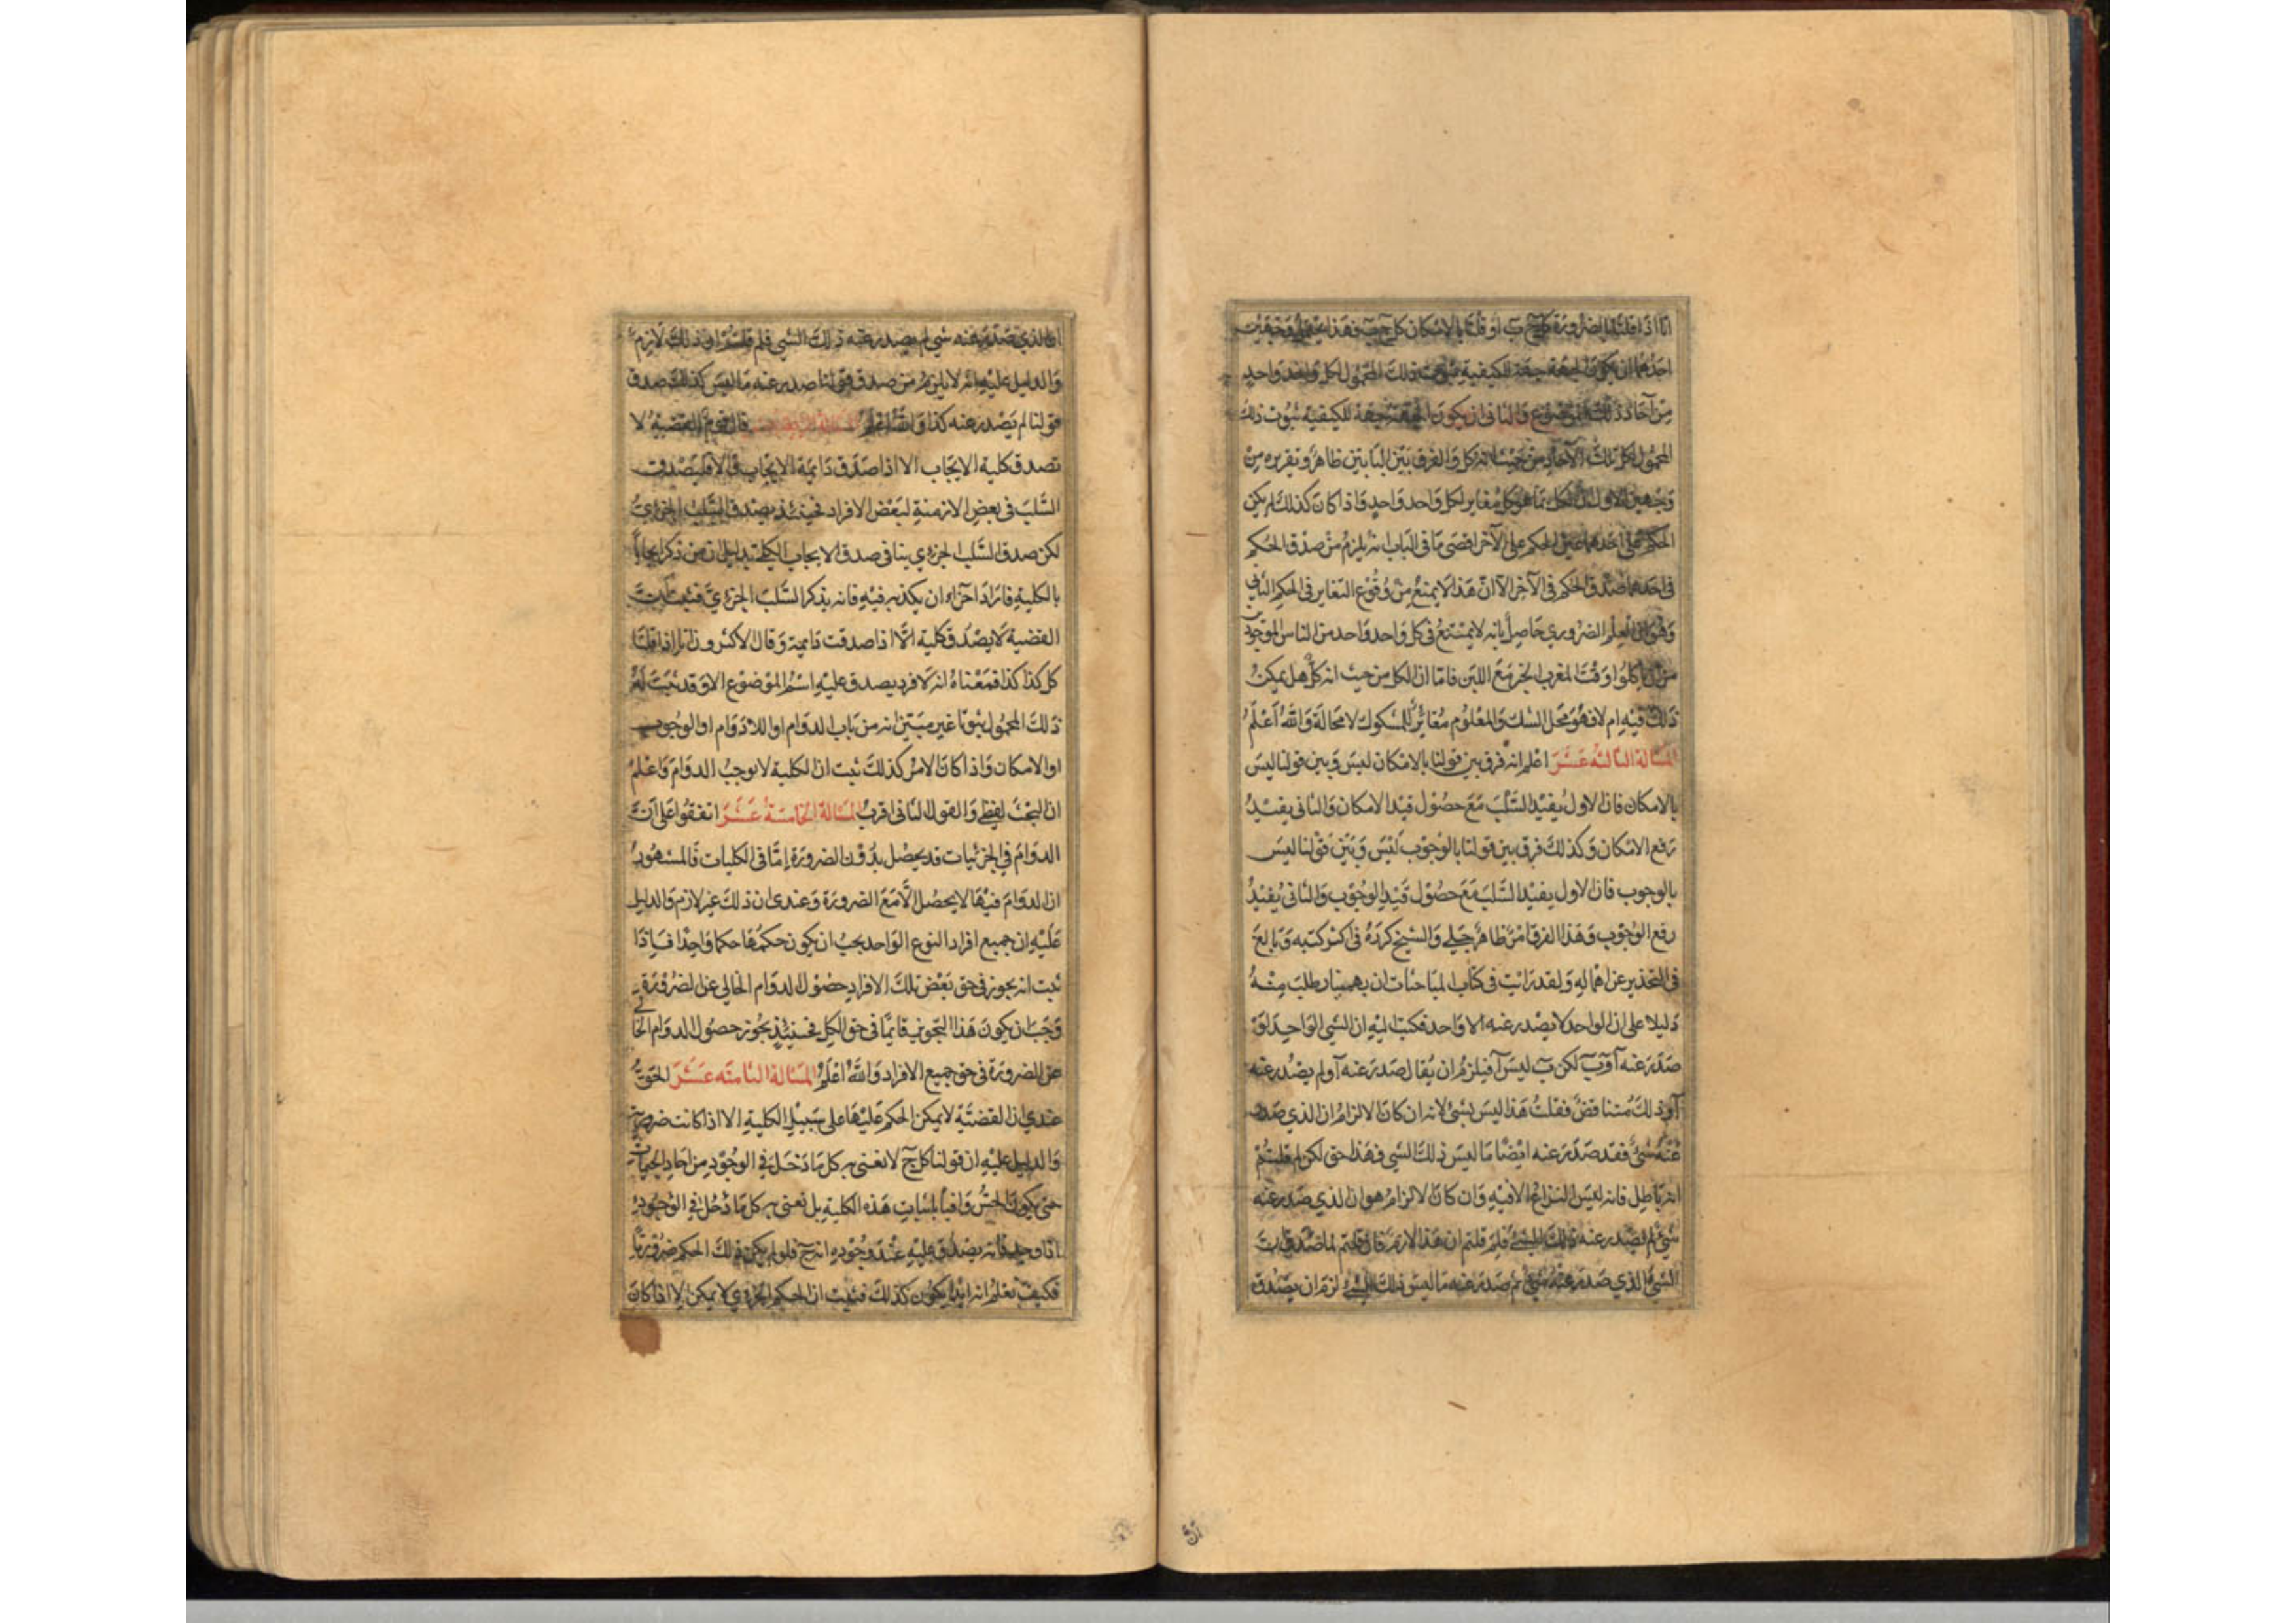 انا اذا قلنا بالضرورة كل ج ب او قلنا بالامكان كل ج ب فهذا يحتمل وجهين
احدهما ان يكون الجهة جهة لكيفية ثبوت ذلك المحمول لكل واحد واحد
من آحاد ذلك الموضوع والثاني ان يكون الجهة جهة للكيفية ثبوت ذلك
المحمول لكل تلك الآحاد من حيث انه كل والفرق بين البابين ظاهر وتقريره من
وجهين الاول ان الكل بما هو كل مغاير لكل واحد واحد واذا كان كذلك لم يكن
الحكم على احدهما عين الحكم على الآخر اقصى ما في الباب انه يلزم من صدق الحكم
في احدهما صدق الحكم في الآخر الا ان هذا لا يمنع من وقوع التغاير في الحكم الثاني
وهو ان العلم الضروري حاصل بانه لا يمتنع في كل واحد واحد من الناس الموجودين
ان ياكلوا وقت المغرب الخبز مع اللبن فاما ان الكل من حيث انه كل هل يمكن
ذلك فيه ام لا فهو محل الشك والمعلوم مغاير للمشكوك لا محالة والله اعلم
المسالة الثالثة عشر اعلم انه فرق بين قولنا بالامكان ليس وبين قولنا ليس
بالامكان فان الاول يفيد السلب مع حصول قيد الامكان والثاني يفيد
رفع الامكان وكذلك فرق بين قولنا بالوجوب ليس وبين قولنا ليس
بالوجوب فان الاول يفيد السلب مع حصول قيد الوجوب والثاني يفيد
رفع الوجوب وهذا الفرق امر ظاهر جلي والشيخ كرره في اكثر كتبه وبالغ
في التحذير عن اهماله ولقد رايت في كتاب المباحثات ان بهمنيار طلب منه
دليلا على ان الواحد لا يصدر عنه الا واحد فكتب اليه ان الشي الواحد لو
صدر عنه آ و ب لكن ب ليس آ فيلزم ان يقال صدر عنه آ ولم يصدر عنه
آ وذلك متناقض فقلت هذا ليس بشئ لانه ان كان الالزام ان الذي صدر
عنه شئ فقد صدر عنه ايضا ما ليس ذلك الشي فهذا حق لكن لم قلتم
انه باطل فانه ليس النزاع الا فيه وان كان الالزام هو ان الذي صدر عنه
شئ لم يصدر عنه ذلك الشئ فلم قلتم ان هذا لازم فان قلتم لما صدق ان
الشئ الذي صدر عنه شئ صدر عنه ما ليس ذلك الشئ لزم ان يصدق
ان الذي صدر عنه شي لم يصدر عنه ذلك الشي فلم قلتم ان ذلك لازم
والدليل عليه انه لا يلزم من صدق قولنا صدر عنه ما ليس كذلك صدق
قولنا لم يصدر عنه كذا والله اعلم المسالة الرابعة عشر قال قوم القضية لا
تصدق كلية الايجاب الا اذا صدق دايمة الايجاب والا فليصدق
السلب في بعض الازمنة لبعض الافراد فحينئذ يصدق السلب الجزوي
لكن صدق السلب الجزوي ينافي صدق الايجاب الكلي بدليل ان من ذكر ايجابا
بالكلية فاراد آخر ان يكذبه فيه فانه يذكر السلب الجزوي فثبت ان
القضية لا يصدق كلية الا اذا صدقت دايمة وقال الاكثرون انا اذا قلنا
كل كذا كذا فمعناه انه لا فرد يصدق عليه اسم الموضوع الا وقد ثبت له
ذلك المحمول ثبوتا غير مبين انه من باب الدوام او اللادوام او الوجوب
او الامكان واذا كان الامر كذلك ثبت ان الكلية لا يوجب الدوام واعلم
ان البحث لفظي والقول الثاني اقرب المسالة الخامسة عشر اتفقوا على ان
الدوام في الجزئيات قد يحصل بدون الضرورة اما في الكليات فالمشهور
ان الدوام فيها لا يحصل الا مع الضرورة وعندي ان ذلك غير لازم والدليل
عليه ان جميع افراد النوع الواحد يجب ان يكون حكمها حكما واحدا فاذا
ثبت انه يجوز في حق بعض تلك الافراد حصول الدوام الخالي عن الضرورة
وجب ان يكون هذا التجويز قايما في حق الكل فحينئذ يجوز حصول الدوام الخالي
عن الضرورة في حق جميع الافراد والله اعلم المسالة الثامنة عشر الحق
عندي ان القضية لا يمكن الحكم عليها على سبيل الكلية الا اذا كانت ضرورية
والدليل عليه ان قولنا كل ج لا نعني به كل ما دخل في الوجود من آحاد الجيمات
حتى يكون الحس وافيا باثبات هذه الكلية بل نعني به كل ما دخل في الوجود
فانه يصدق عليه عند وجوده انه ج فلو لم يكن ذلك الحكم ضروريا
فكيف نعلم انه ابدا يكون كذلك فثبت ان الحكم لا يمكن الا اذا كان